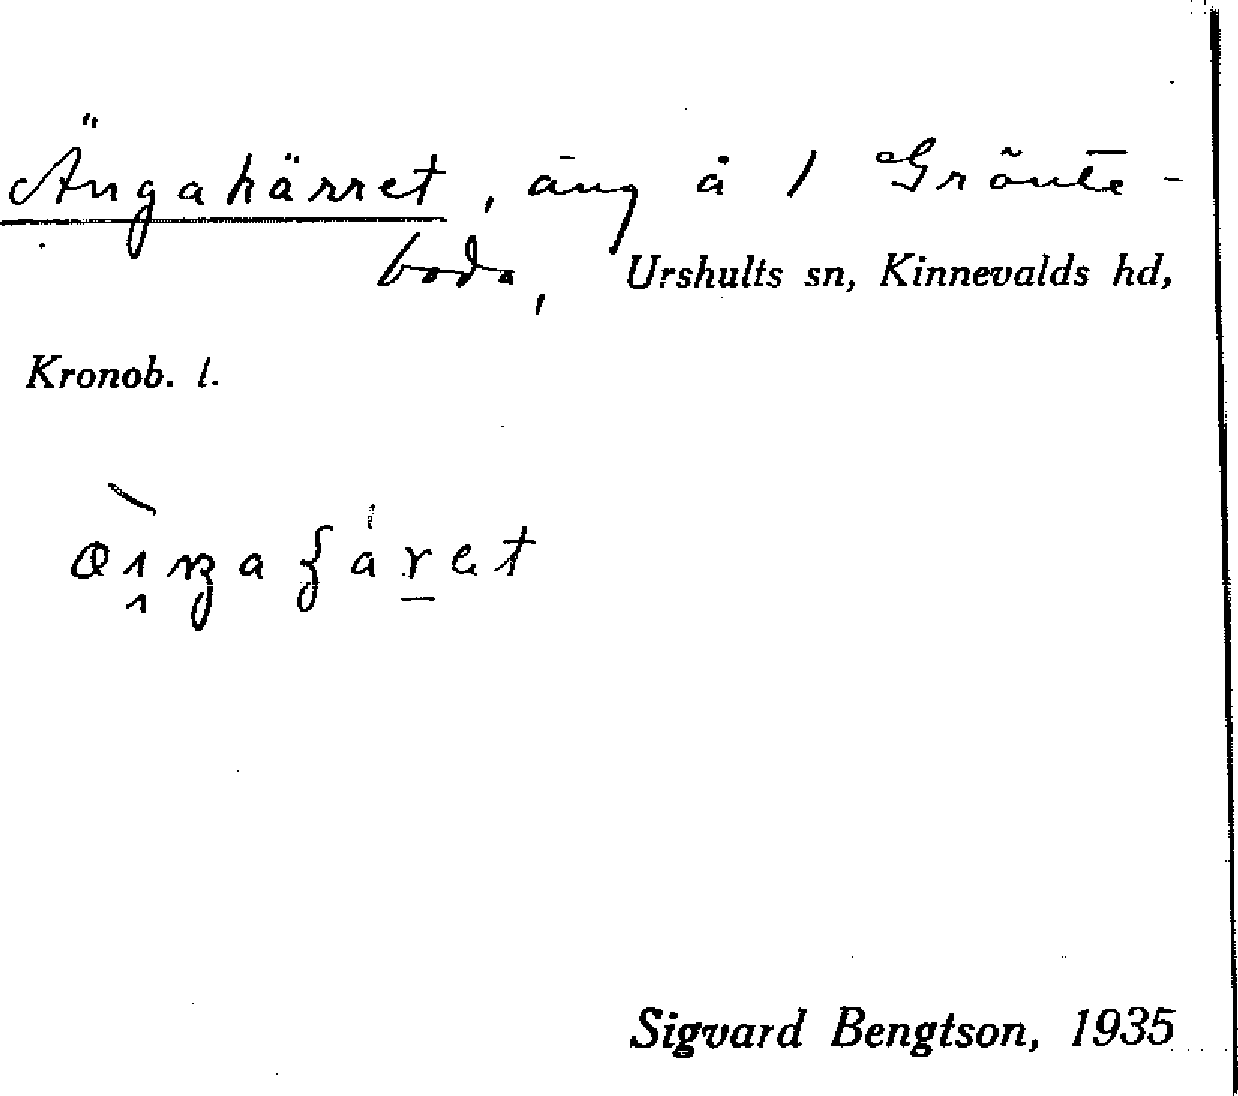 Ängakärret, äng å 1 Grönte-
boda, Urshults sn, Kinnevalds hd,
Kronob. l.
Sigvard Bengtson, 1935